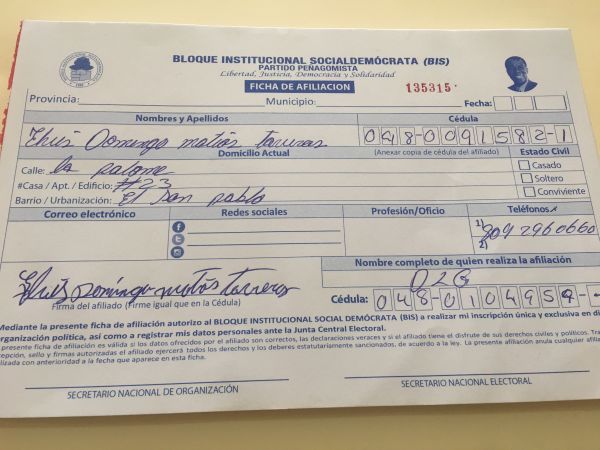 BLOQUE INSTITUCIONAL SOCIALDEMÓCRATA (BIS)
PARTIDO PEÑAGOMISTA
Libertad, Justicia, Democracia y Solidaridad
FICHA DE AFILIACION
135315
Provincia: Municipio: Fecha:
Nombres y Apellidos Cédula
Domingo matos 048-0091582-1
Domicilio Actual (Anexar copia de cédula del afiliado) Estado Civil
Calle: la palome Casado
#Casa / Apt. / Edificio: #23 Soltero
Barrio / Urbanización: El san pablo Conviviente
Correo electrónico Redes sociales Profesión/Oficio Teléfonos
1) 809 2960660
2)
Nombre completo de quien realiza la afiliación
Domingo matos
Firma del afiliado (Firme igual que en la Cédula)
Cédula: 048-0104959-
Mediante la presente ficha de afiliación autorizo al BLOQUE INSTITUCIONAL SOCIAL DEMÓCRATA (BIS) a realizar mi inscripción única y exclusiva en di
organización política, así como a registrar mis datos personales ante la Junta Central Electoral.
presente ficha de afiliación es válida si los datos ofrecidos por el afiliado son correctos, las declaraciones veraces y si el afiliado tiene el disfrute de sus derechos civiles y políticos. Tra
cepción, sello y firmas autorizadas el afiliado ejercerá todos los derechos y los deberes estatutariamente sancionados, de acuerdo a la ley. La presente afiliación anula cualquier afilia
lizada con anterioridad a la fecha que aparece en esta ficha.
SECRETARIO NACIONAL DE ORGANIZACIÓN SECRETARIO NACIONAL ELECTORAL